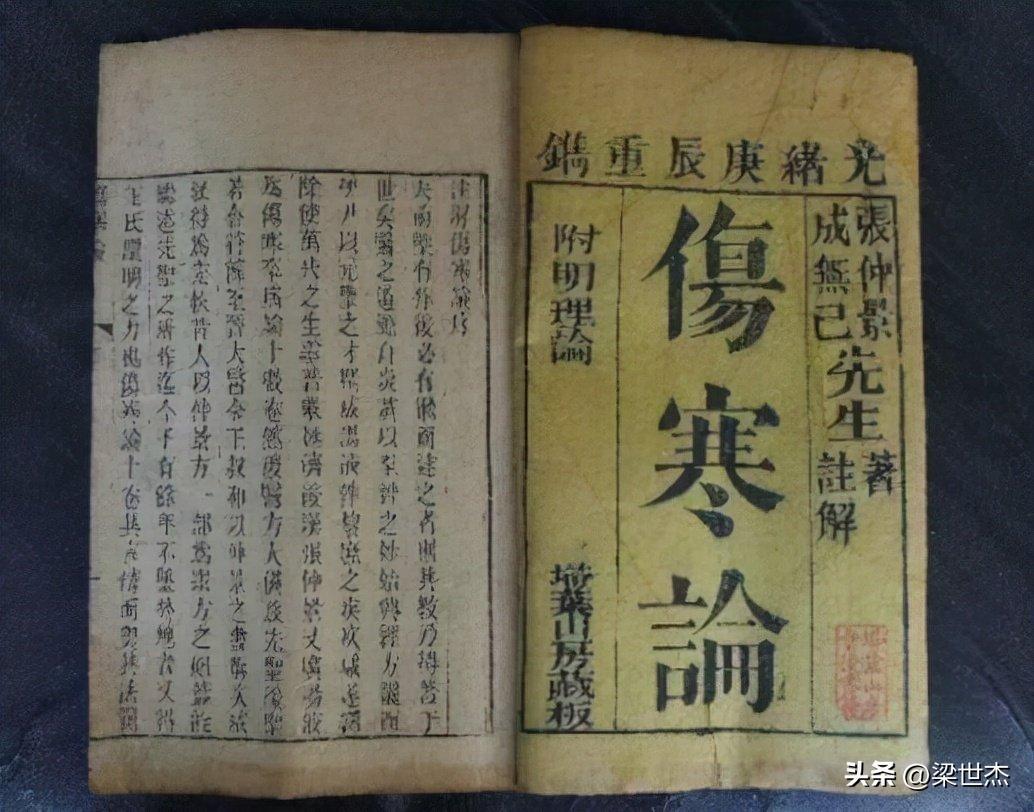 光緒庚辰重鐫
張仲景先生著
成無己先生註解
傷寒論
附明理論
掃葉山房藏板
註解傷寒論序
夫前聖有作後必有繼而述之者則其教乃得著于
世矣醫之道源自炎黃以至神之妙始興經方繼而
伊尹以元聖之才撰成湯液俾黎庶之疾疚咸遂蠲
除使萬代之生靈普蒙拯濟後漢張仲景又廣湯液
為傷寒卒病論十數卷然後醫方大備茲先聖後聖
若合符節至晉太醫令王叔和以仲景之書撰次成
敘得為完秩昔人以仲景方一部為眾方之祖蓋能
繼述先聖之所作迄今千有餘年不墜於地者又得
王氏闡明之力也傷寒論十卷其言精而奧其法簡
头条 @梁世杰